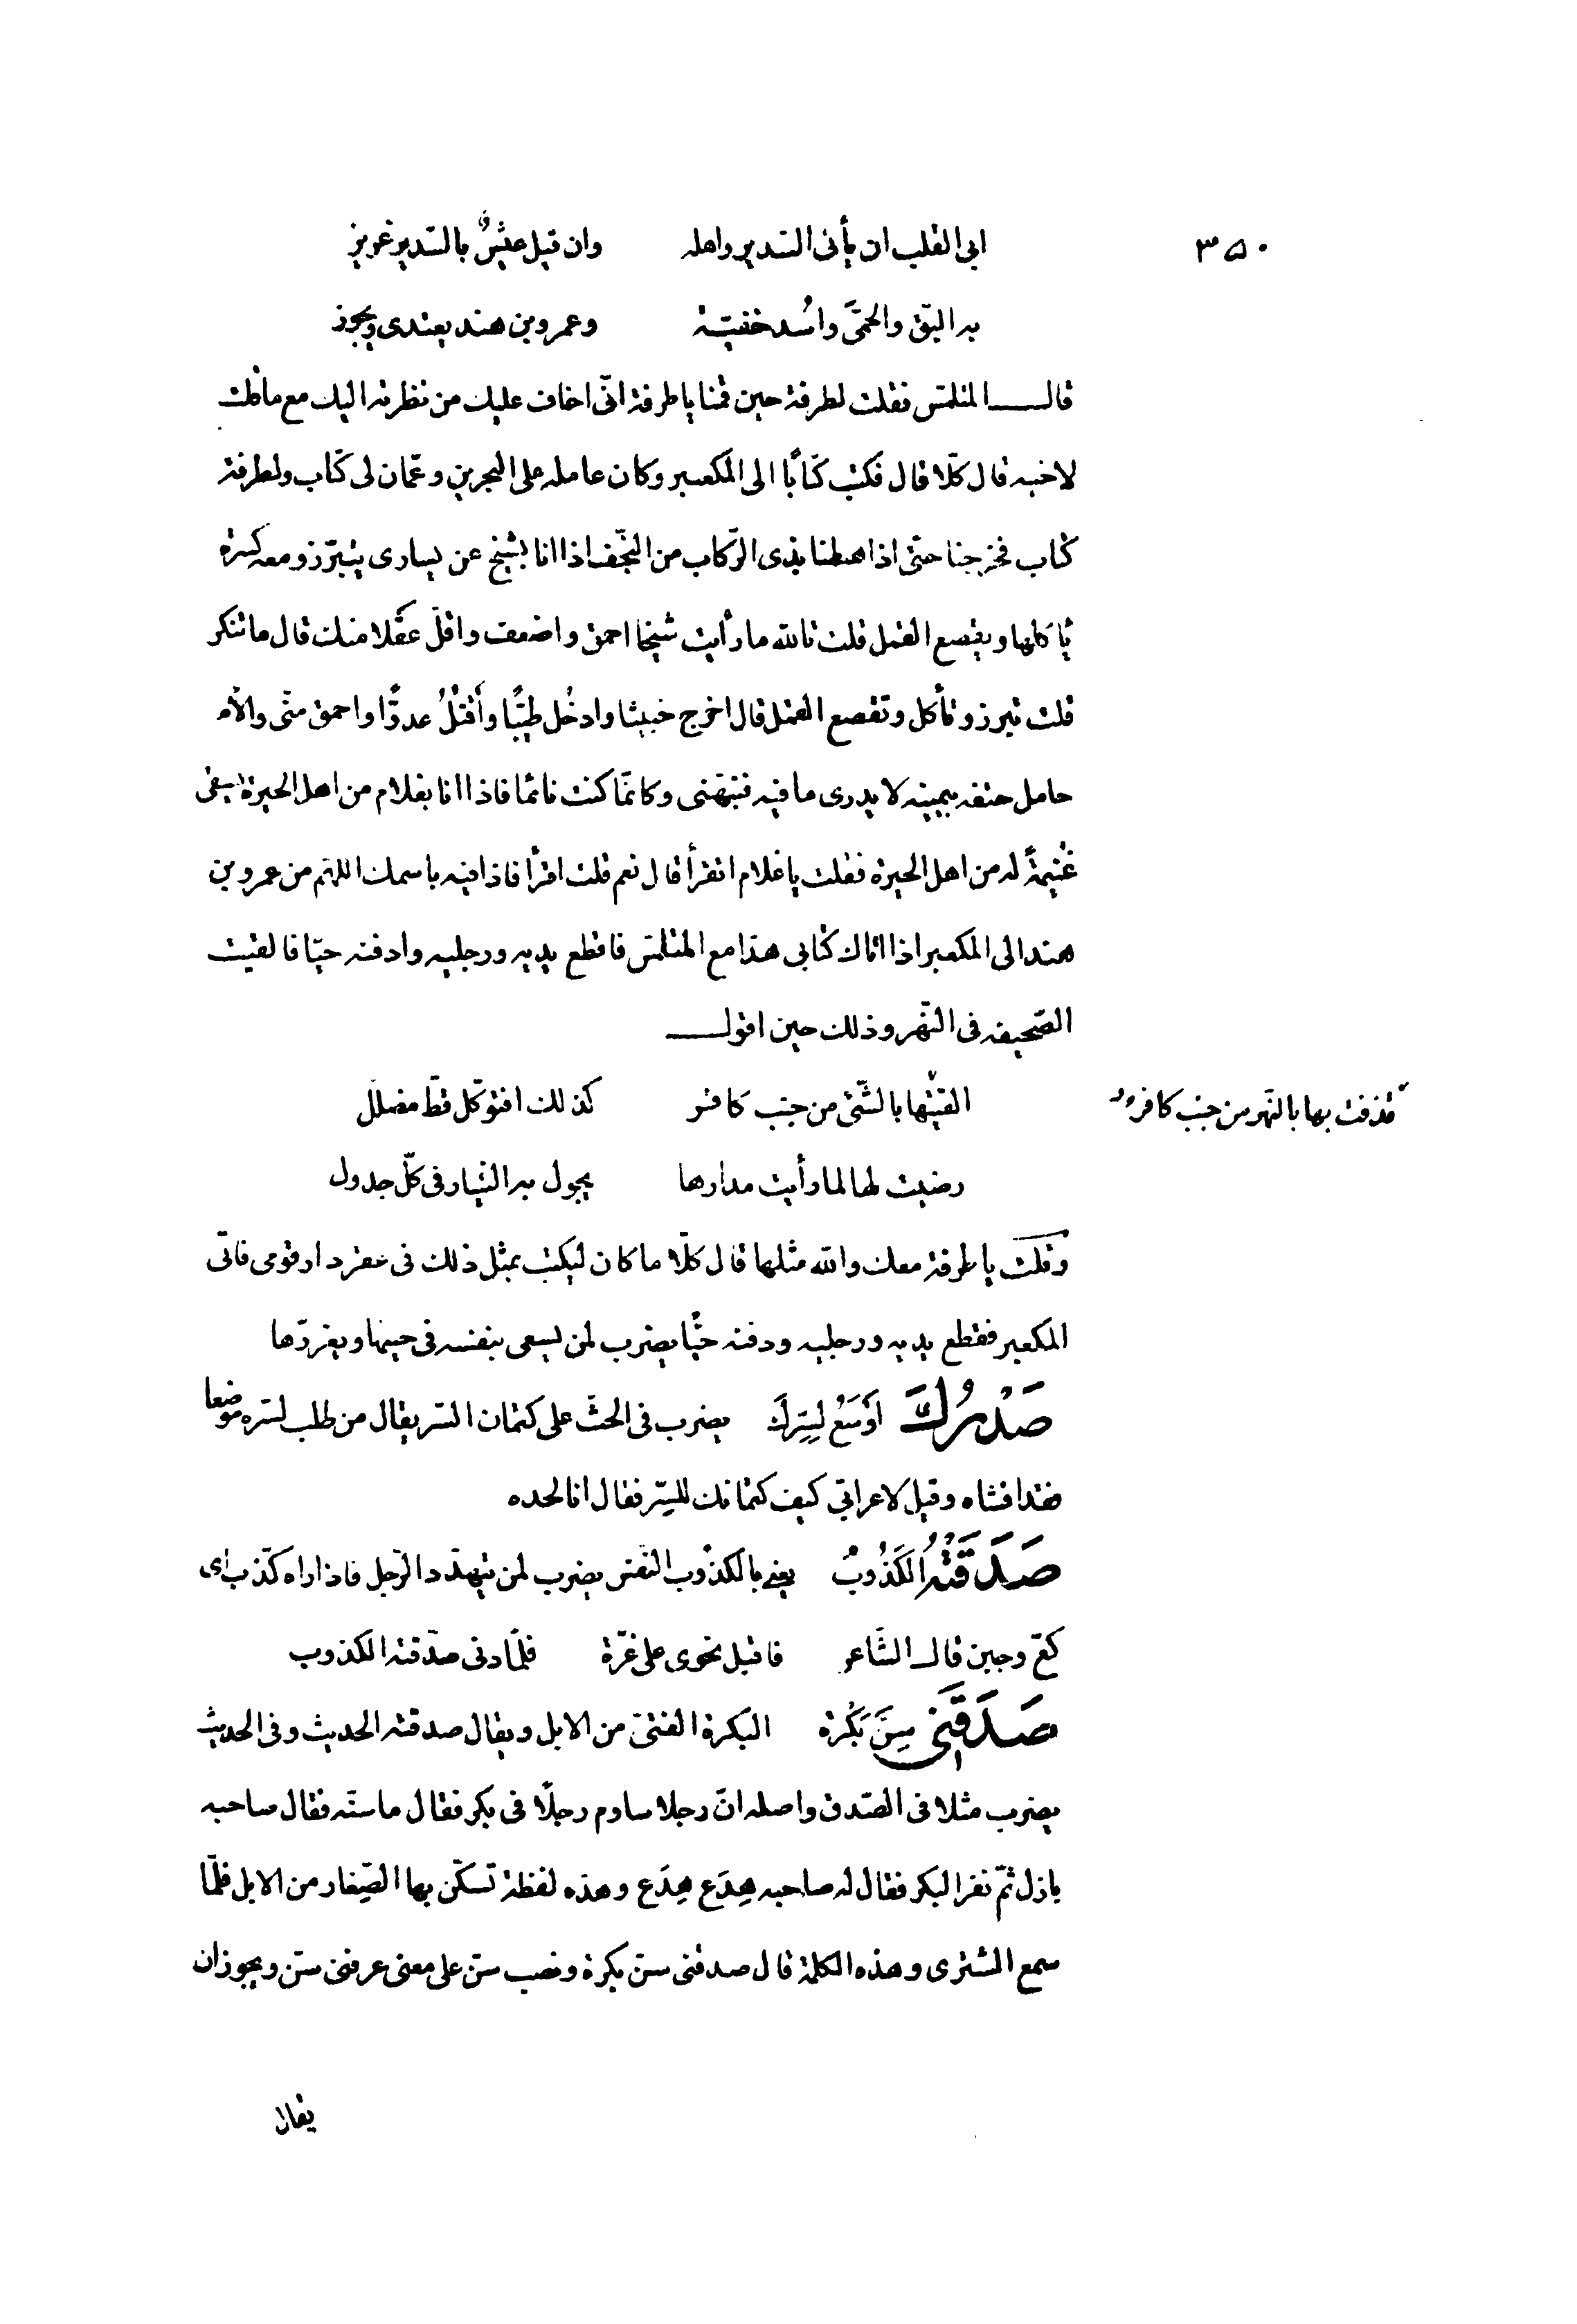 ٣٥٠
ابى القلب ان يأتى السدير واهله وان قيل عيشٌ بالسّدير غريز
به البقّ والحمّى واُسد خفيّة وعمرو بن هند يعتدى ويجوز
قال المتلمّس فقلت لطرفة حين قمنا يا طرفة انّى اخاف عليك من نظرته اليك مع ما قلت
لاخيه قال كلّا قال فكتب كتابًا الى المكعبر وكان عامله على البحرين وعمّان لى كتاب ولطرفة
كتاب فخرجنا حتّى اذا هبطنا بذى الرّكاب من النّجف اذا انا بشيخ عن يسارى يتبرّز ومعه كسرة
يأكلها ويقصع القمل قلت تالله ما رأيت شيخا احمق واضعف واقلّ عقلا منك قال ما تنكر
قلت تبرز وتأكل وتقصع القمل قال اخرج خبيثا وادخُل طيّبًا وأقتلُ عدوًّا واحمق منّى والأم
حامل حتفه بيمينه لا يدرى ما فيه فنبّهنى وكانّما كنت نائما فاذا انا بغلام من اهل الحيرة يسقى
غُنيمةً له من اهل الحيرة فقلت يا غلام اتقرأ قال نعم قلت اقرأ فاذا فيه باسمك اللهمّ من عمرو بن
هند الى المكعبر اذا اتاك كتابى هذا مع المتلمّس فاقطع يديه ورجليه وادفنه حيّا فالقيت
الصّحيفة فى النّهر وذلك حين اقول
القيتها بالثّنى من جنب كافر كذلك اقنو كلّ قطّ مضلّل
قذفت بها بالنهر من جنب كافر
رضيت لها لما رأيت مدارها يجول به التيّار فى كلّ جدول
وقلت يا طرفة معك والله مثلها قال كلّا ما كان ليكتب بمثل ذلك فى عقر دار قومى فاتى
المكعبر فقطع يديه ورجليه ودفنه حيًّا يضرب لمن يسعى بنفسه فى حينها ويغررّها
صَدْرُكَ اَوْسَعُ لِسِرِّكَ يضرب فى الحثّ على كتمان السّر يقال من طلب لسّره موضعا
فقد افشاه وقيل لاعرابّى كيف كتمانك للسِّر فقال انا لحده
صَدَقَتْهُ الكَذُوبُ يعنى بالكذُوب النّفس يضرب لمن يتهدّد الرّجل فاذا راه كذّب اى
كعّ وجبن قال الشّاعر فاقبل نحوى على غرّة فلمّا دنى صدّقته الكذوب
صَدَقَنِى سِنَّ بَكْرِهِ البكرة الفتىّ من الابل ويقال صدقته الحديث وفى الحديث
يضرب مثلا فى الصّدق واصله انّ رجلا ساوم رجلًا فى بكر فقال ما سنّه فقال صاحبه
بازل ثمّ نفر البكر فقال له صاحبه هِدَع هِدَع وهذه لفظة تسكّن بها الصّغار من الابل فلمّا
سمع المشترى وهذه الكلمة قال صدقنى سنّ بكره ونصب سنّ على معنى عرفنى سنّ ويجوز ان
يقال